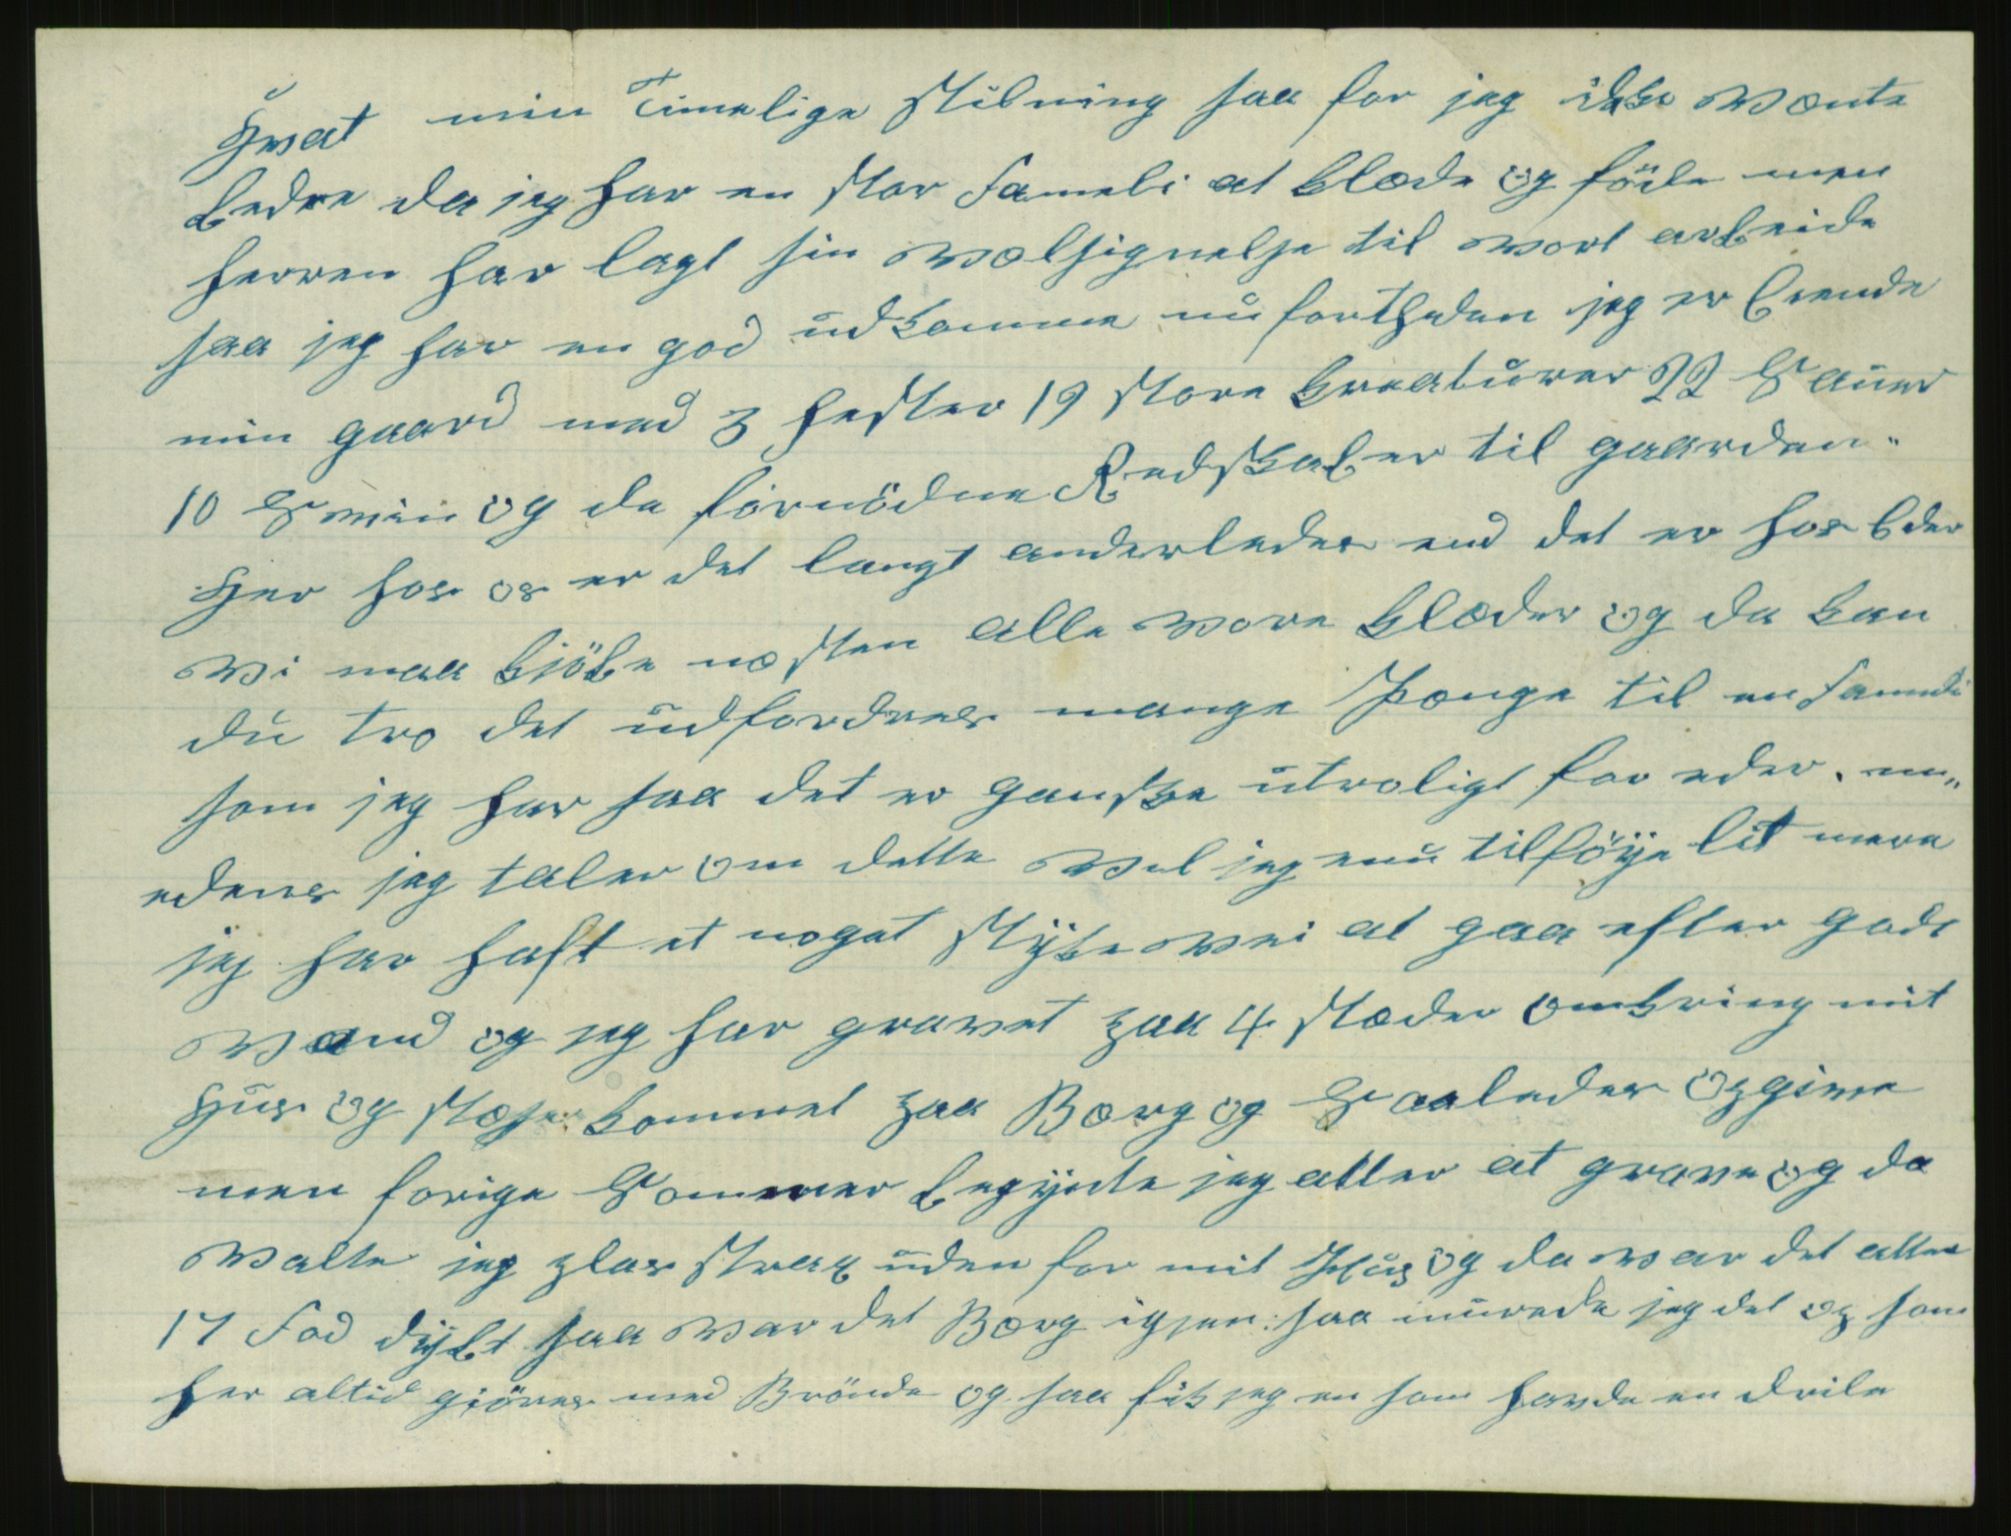 Hvat min Timelige Stilning saa for jeg ikke vænte
bedre da jeg har en stor Fameli at klæde og föde men
herren har lagt sin Wælsignelse til vort arbeide
saa jeg har en god udkomme nu fortheden jeg er Eiende
min gaard med 3 hester 19 store kreaturer 22 Sauer
10 Sviin og de fornödne Redskaber til gaarden.
Her hos os er det langt anderledes end det er hos Eder
Vi maa kjöbe næsten alle vore klæder og da kan
du tro det udfordres mange Pænge til en Fameli
som jeg har saa det er ganske utroligt for eder. im„
edens jeg taler om dette vil jeg enu tilföye lit mere
jeg har haft et noget stykke vei at gaa efter godt
Vand og jeg har gravet paa 4 stæder omkring mit
Hus og stæse kommet paa Bærg og Saaledes opgive
men forige Sommer begynte jeg atter at grave og da
Valte jeg plas strax uden for mit Hus og da var det atter
17 Fod dybt saa var det Bærg igjen: saa murede jeg det op som
her altid gjöres med Brönde og saa fik jeg en som havde en drile